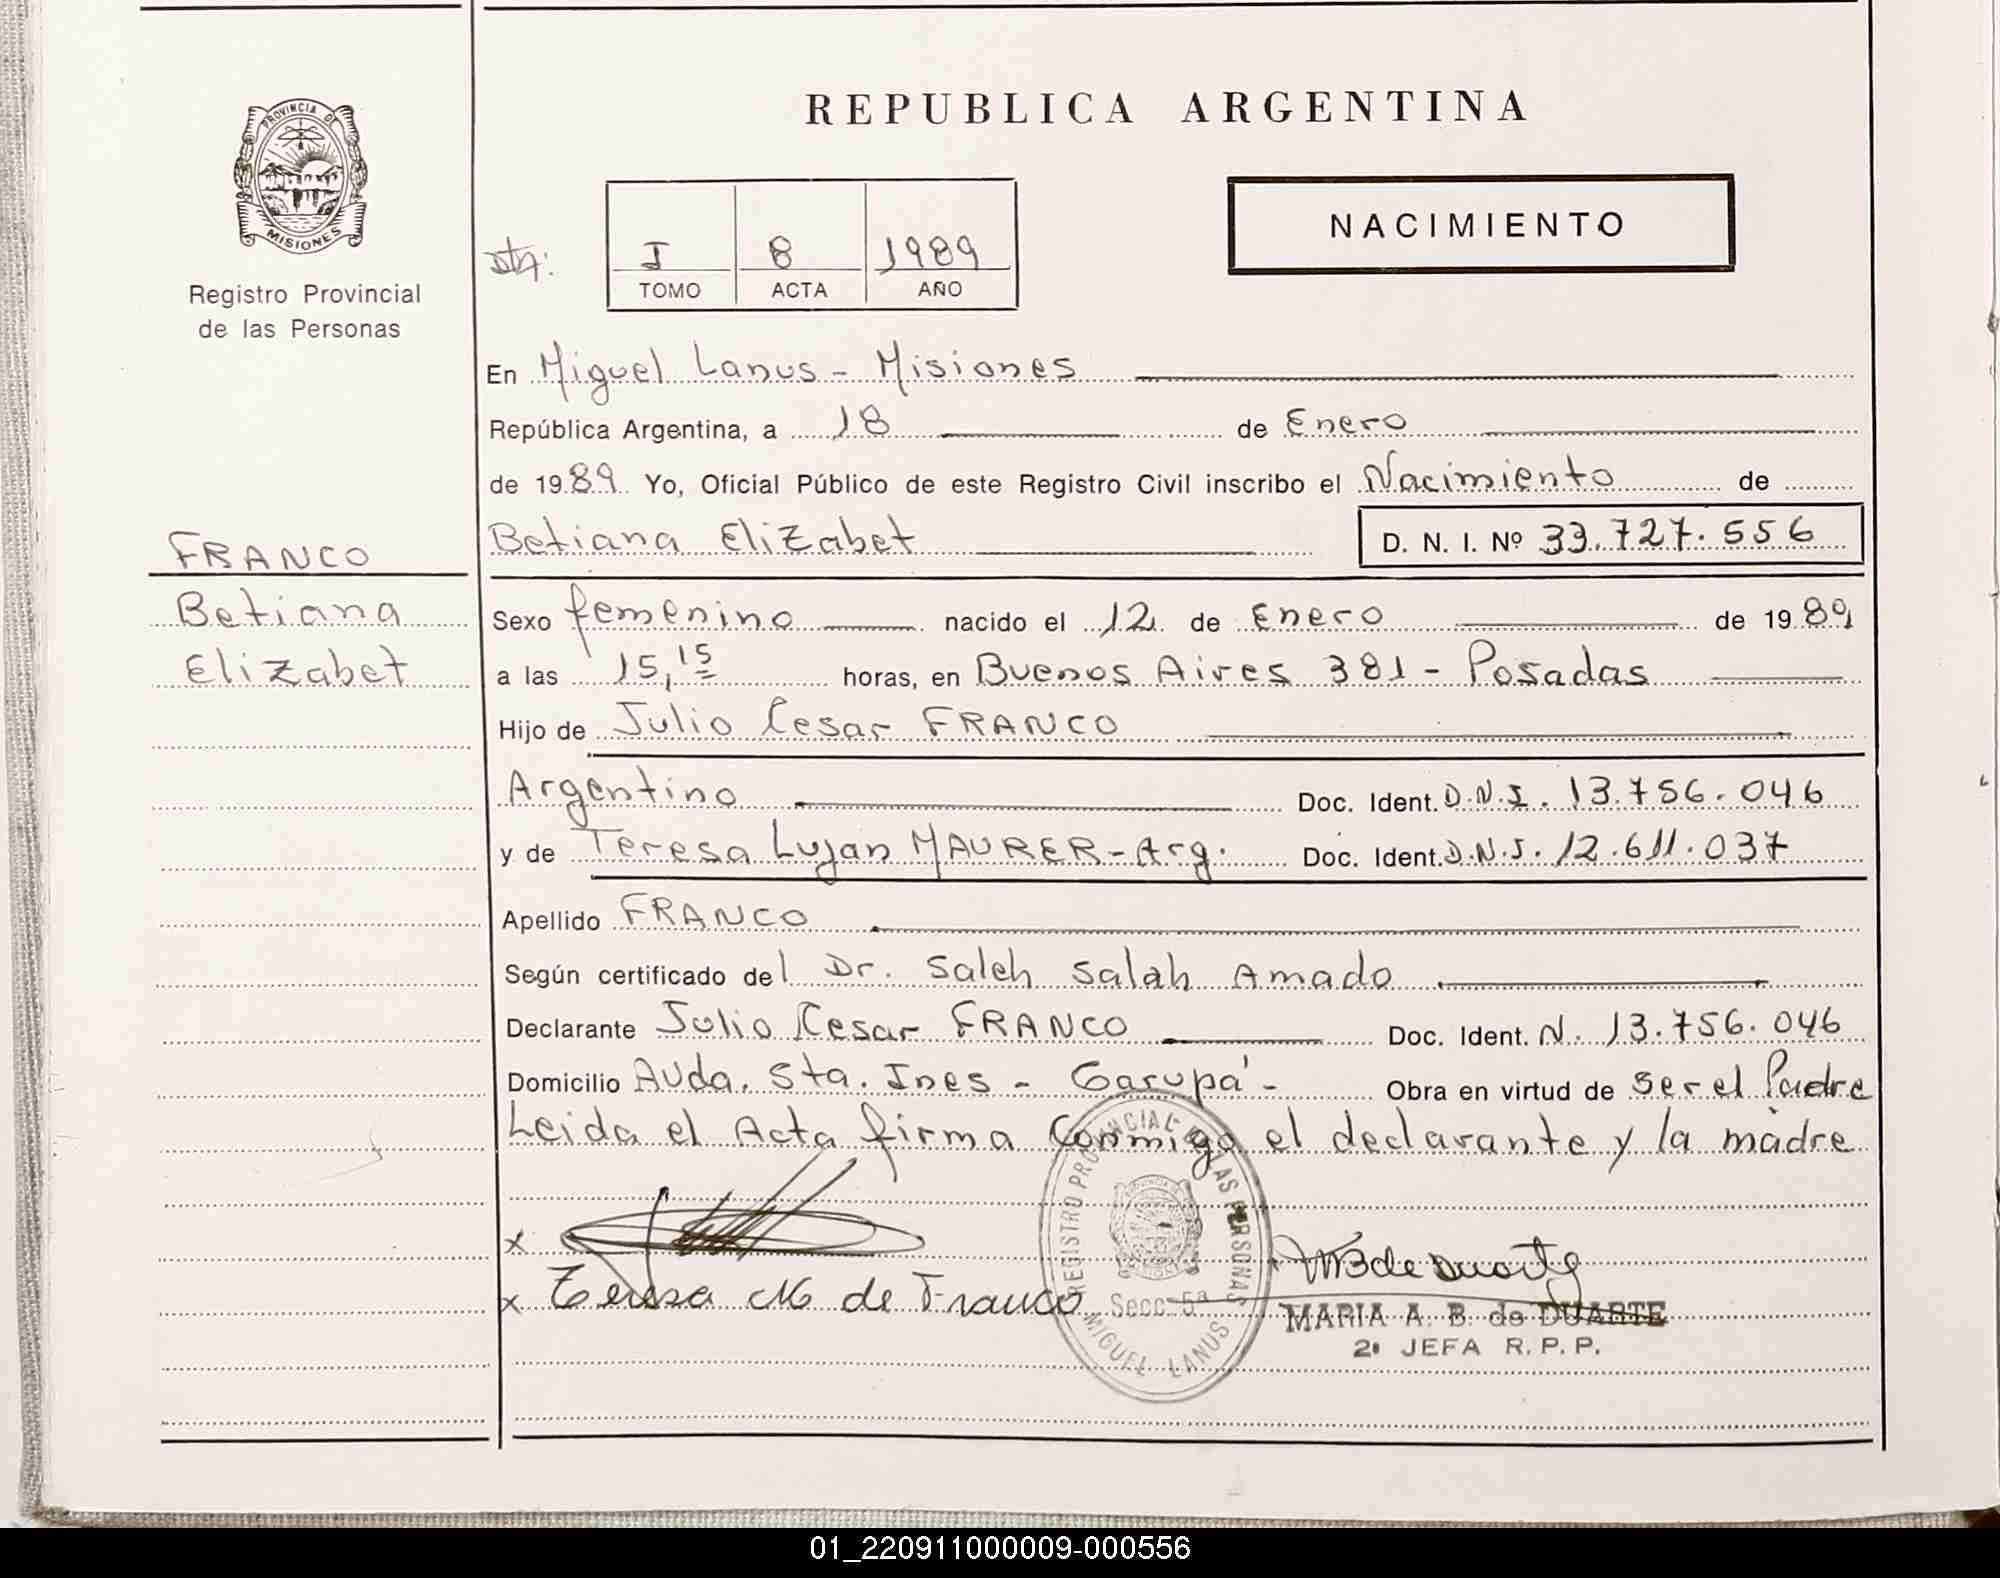 REPUBLICA ARGENTINA
PROVINCIA DE
MISIONES
Registro Provincial
de las Personas
NACIMIENTO
I 8 1989
TOMO ACTA AÑO
En Miguel Lanus - Misiones
República Argentina, a 18 de Enero
de 1989 Yo, Oficial Público de este Registro Civil inscribo el Nacimiento de
Betiana Elizabet D. N. I. Nº 33.727.556
FRANCO
Betiana
Elizabet
Sexo femenino nacido el 12 de Enero de 1989
a las 15,15 horas, en Buenos Aires 381 - Posadas
Hijo de Julio Cesar FRANCO
Argentino Doc. Ident. D.N.I. 13.756.046
y de Teresa Lujan MAURER - Arg. Doc. Ident. D.N.I. 12.611.037
Apellido FRANCO
Según certificado del Dr. Saleh Salah Amado
Declarante Julio Cesar FRANCO Doc. Ident. N. 13.756.046
Domicilio Avda. Sta. Ines - Garupá - Obra en virtud de ser el Padre
Leida el Acta firma conmigo el declarante y la madre
x
x Teresa M de Franco
REGISTRO PROVINCIAL DE LAS PERSONAS
Secc. 5ª
MIGUEL LANUS
MABdeDuarte
MARIA A. B. de DUARTE
2ª JEFA R. P. P.
01_220911000009-000556